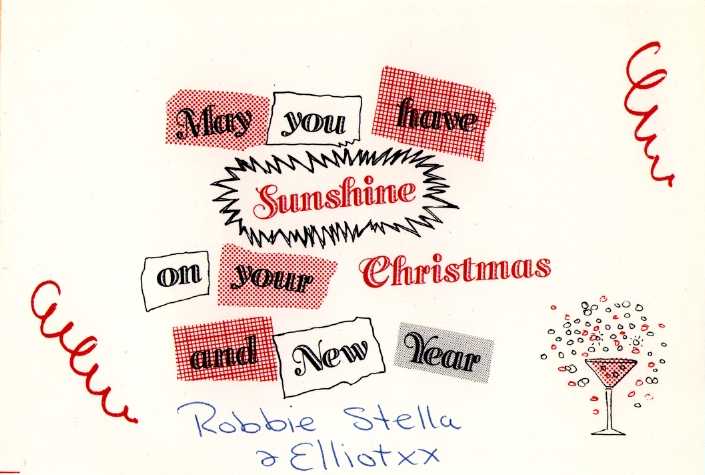 May you have
Sunshine
on your Christmas
and New Year
Robbie Stella
& Elliot xx